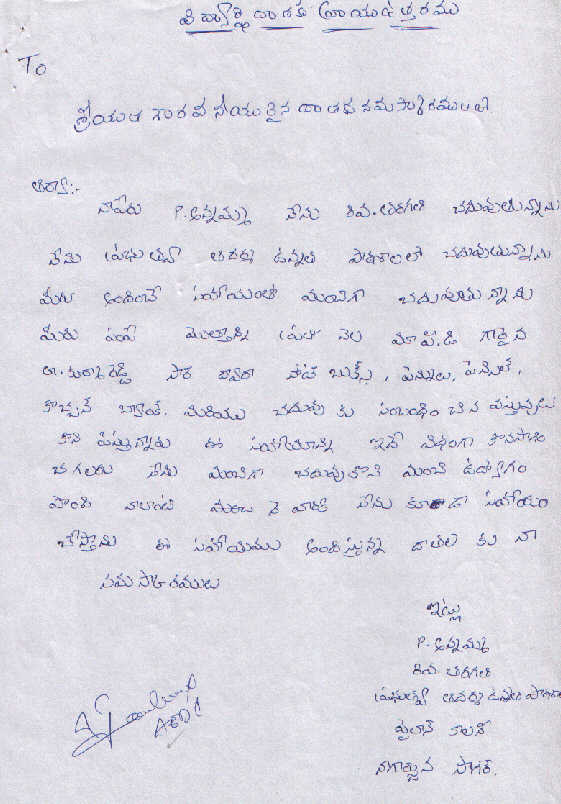 విద్యార్థి దాతకు వ్రాయు ఉత్తరము
To
శ్రీయుత గౌరవనీయులైన దాతకు నమస్కారములతో
ఆర్యా:-
నాపేరు P. అన్నమ్మ నేను 6వ. తరగతి చదువుతున్నాను
నేను ప్రభుత్వ ఆదర్శ ఉన్నత పాఠశాలలో చదువుతున్నాను
మీరు అందించే సహాయంతో మంచిగా చదువుతున్నాను
మీరు పంపే మొత్తాన్ని ప్రతి నెల మా పి.డి గారైన
రెడ్డి సార్ ద్వారా నోట్ బుక్స్, పెన్నులు, పెన్సిల్,
కొచ్చన్ బ్యాంక్, మరియు చదువు కు సంబంధించిన వస్తువులు
కొని ఇస్తున్నారు ఈ సహాయాన్ని ఇదే విధంగా కొనసాగిం
చగలరు నేను మంచిగా చదువుకొని మంచి ఉద్యోగం
పొంది నాలాంటి మరి వారికి నేను కూడా సహాయం
చేస్తాను ఈ సహాయము అందిస్తున్న దాతలకు నా
నమస్కారములు
ఇట్లు
P. అన్నమ్మ
6వ తరగతి
ప్రభుత్వ ఆదర్శ ఉన్నత పాఠశాల
పైలాన్ కాలనీ
నాగార్జున సాగర్.